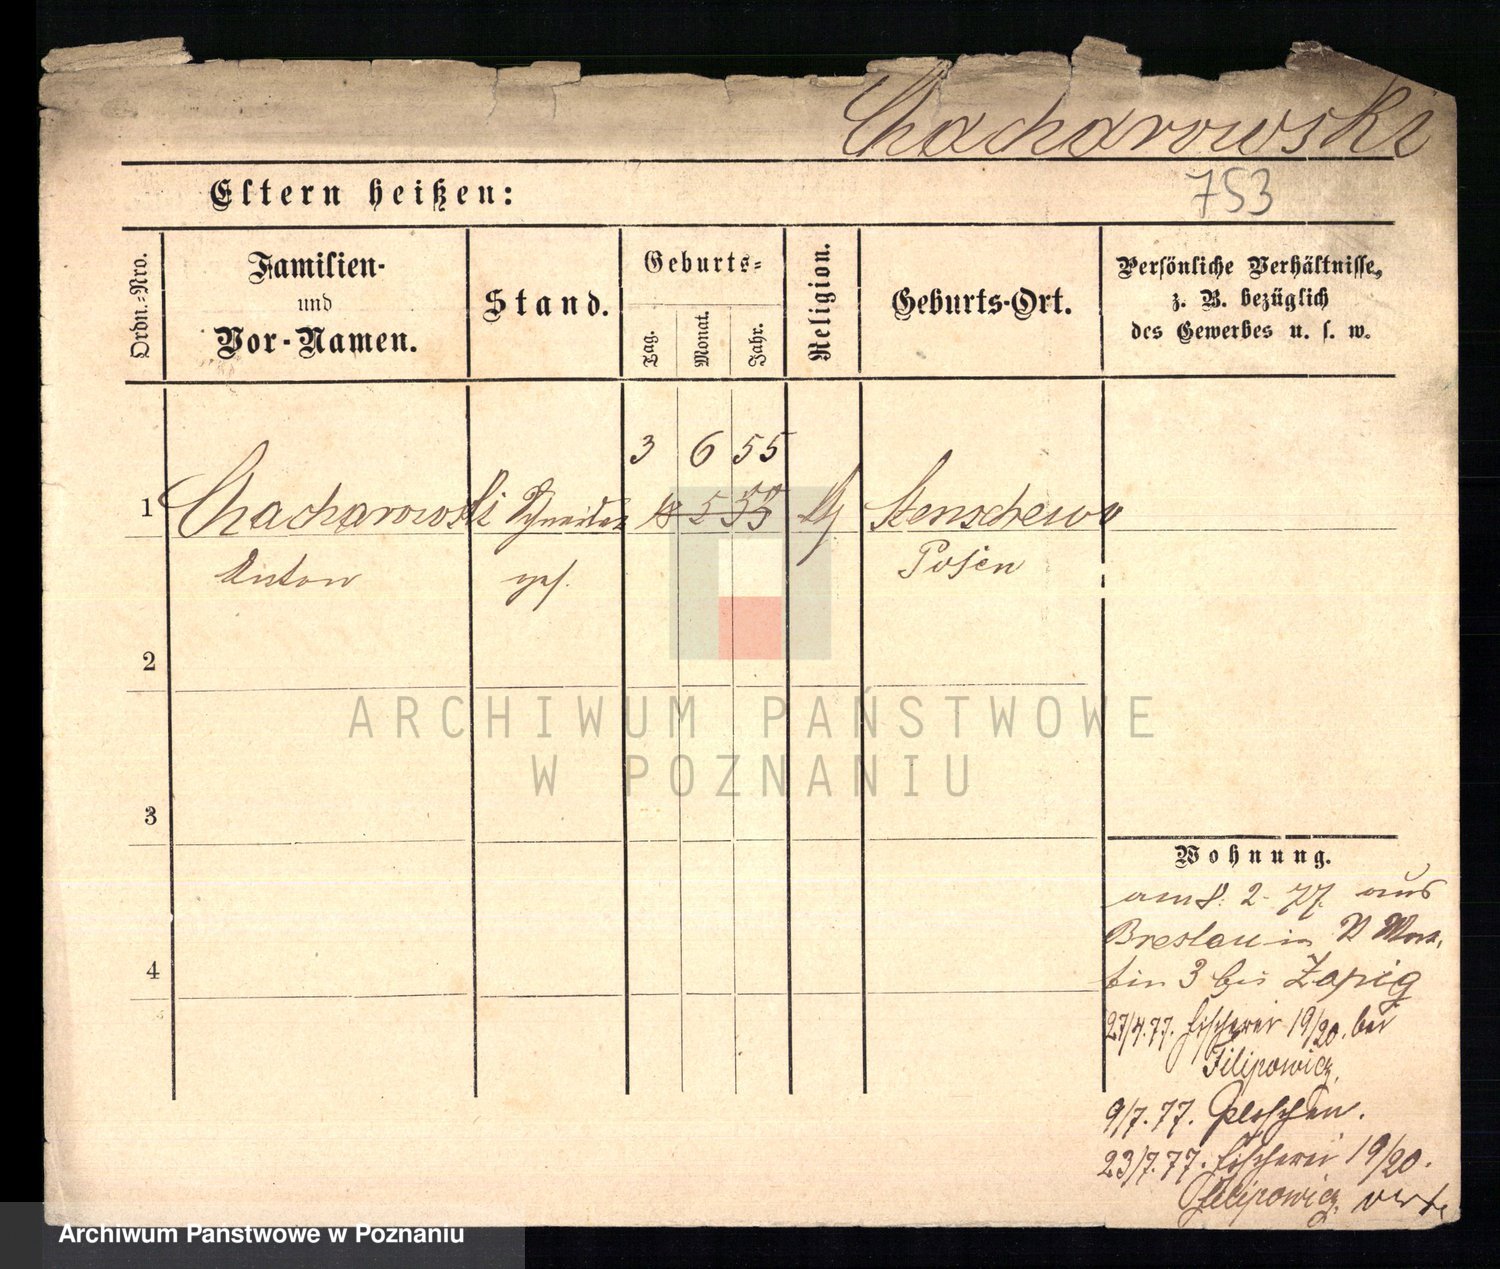 Chacharowski
Eltern heißen:
753
Ordn.-Nro.
Familien-
und
Vor-Namen.
Stand.
Geburts-
Tag.
Monat.
Jahr.
Religion.
Geburts-Ort.
Persönliche Verhältnisse,
z. B. bezüglich
des Gewerbes u. s. w.
3 6 55
1 Chacharowski Schneider 18 5 55 Stenschewo
Anton ges. Posen
2
3
4
Wohnung.
am 8. 2. 77. aus
Breslau in St Mar-
tin 3 bei Zapig
27/4.77. Fischerei 19/20. bei
Filipowicz.
9/7.77. Pleschen.
23/7.77. Fischerei 19/20.
Filipowicz. vert.
ARCHIWUM PAŃSTWOWE
W POZNANIU
Archiwum Panstwowe w Poznaniu